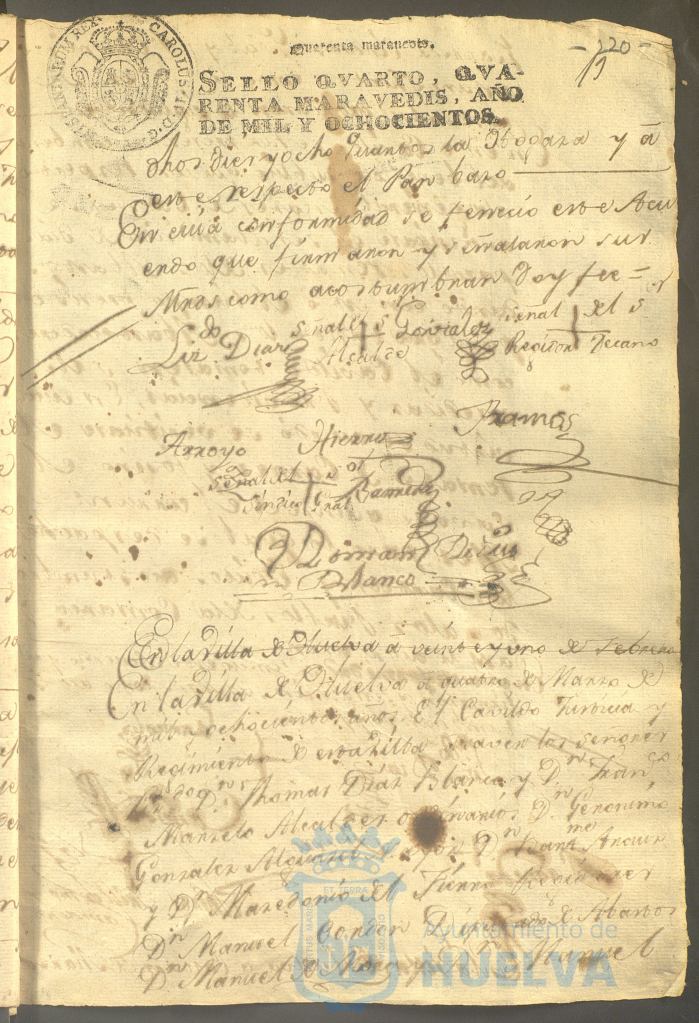 Quarenta maravedis.
-220-
19
CAROLUS IV D. G. HISPANIAR. REX
SELLO QVARTO, QVA-
RENTA MARAVEDIS, AÑO
DE MIL Y OCHOCIENTOS.
dhos diez y ocho quartos la Hogaza y a
este respecto el Pan bazo
En cuia conformidad se fenecio este Acu
erdo que firmaron y señalaron sus
Mrds como acostumbran Doy fee =
Lizdo Diaz
Señal del Sr Gonzalez
Alcalde
Señal del Sr
Regidor Decano
Arroyo Hierro Ramos
Señal del Sr
Sindico Gral
Ramirez
Roman Dieus
Blanco
En la Villa de Huelva á veinte y uno de Febrero
En la Villa de Huelva a quatro de Marzo de
mil y ochocientos años. El Cavildo Justicia y
Regimiento de esta Villa a saver los Señores
Lizdo Dn Thomas Diaz Blanco y Dn Franco
Manzelo Alcaldes ordinarios, Dn Geronimo
Gonzalez Alguacil mayor Dn Bartme
y Dn Mazedonio del Fierro Regidores
Dn Manuel Garzon Diputado de Abastos
Dn Manuel de Manuel
ET TERRA
Ayuntamiento de
HUELVA